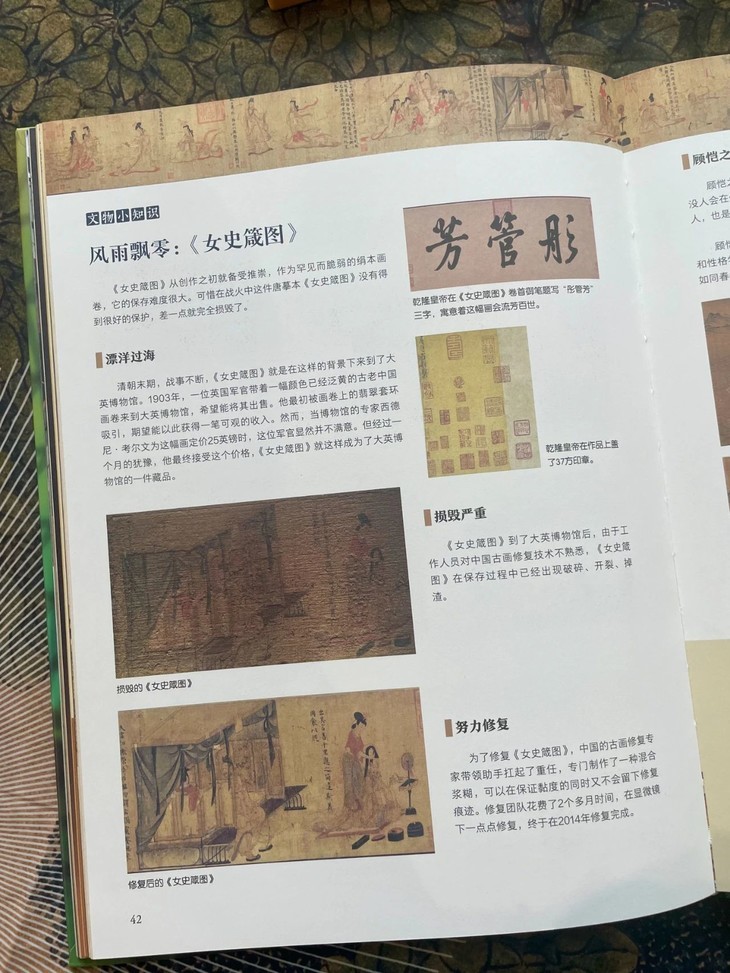 文物小知识
风雨飘零：《女史箴图》
《女史箴图》从创作之初就备受推崇，作为罕见而脆弱的绢本画
卷，它的保存难度很大。可惜在战火中这件唐摹本《女史箴图》没有得
到很好的保护，差一点就完全损毁了。
漂洋过海
清朝末期，战事不断，《女史箴图》就是在这样的背景下来到了大
英博物馆。1903年，一位英国军官带着一幅颜色已经泛黄的古老中国
画卷来到大英博物馆，希望能将其出售。他最初被画卷上的翡翠套环
吸引，期望能以此获得一笔可观的收入。然而，当博物馆的专家西德
尼·考尔文为这幅画定价25英镑时，这位军官显然并不满意。但经过一
个月的犹豫，他最终接受这个价格，《女史箴图》就这样成为了大英博
物馆的一件藏品。
损毁的《女史箴图》
修复后的《女史箴图》
42
芳管彤
乾隆皇帝在《女史箴图》卷首御笔题写“彤管芳”
三字，寓意着这幅画会流芳百世。
乾隆皇帝在作品上盖
了37方印章。
损毁严重
《女史箴图》到了大英博物馆后，由于工
作人员对中国古画修复技术不熟悉，《女史箴
图》在保存过程中已经出现破碎、开裂、掉
渣。
努力修复
为了修复《女史箴图》，中国的古画修复专
家带领助手扛起了重任，专门制作了一种混合
浆糊，可以在保证黏度的同时又不会留下修复
痕迹。修复团队花费了2个多月时间，在显微镜
下一点点修复，终于在2014年修复完成。
顾恺之
顾恺之
没人会在
人，也是
顾恺
和性格
如同春